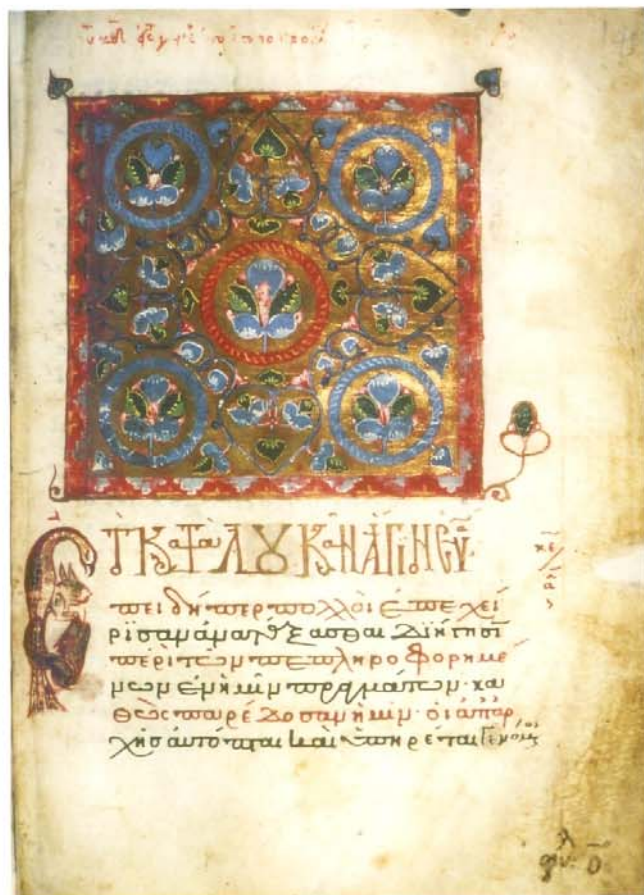 κατα λουκαν αγιον ευ
Επειδήπερ πολλοὶ ἐπεχεί
ρισαν ἀνατάξασθαι διήγησιν
περὶ τῶν πεπληροφορημέ
νων ἐν ἡμῖν πραγμάτων· κα
θὼς παρέδοσαν ἡμῖν· οἱ ἀπαρ
χῆς αὐτόπται καὶ ὑπηρέται